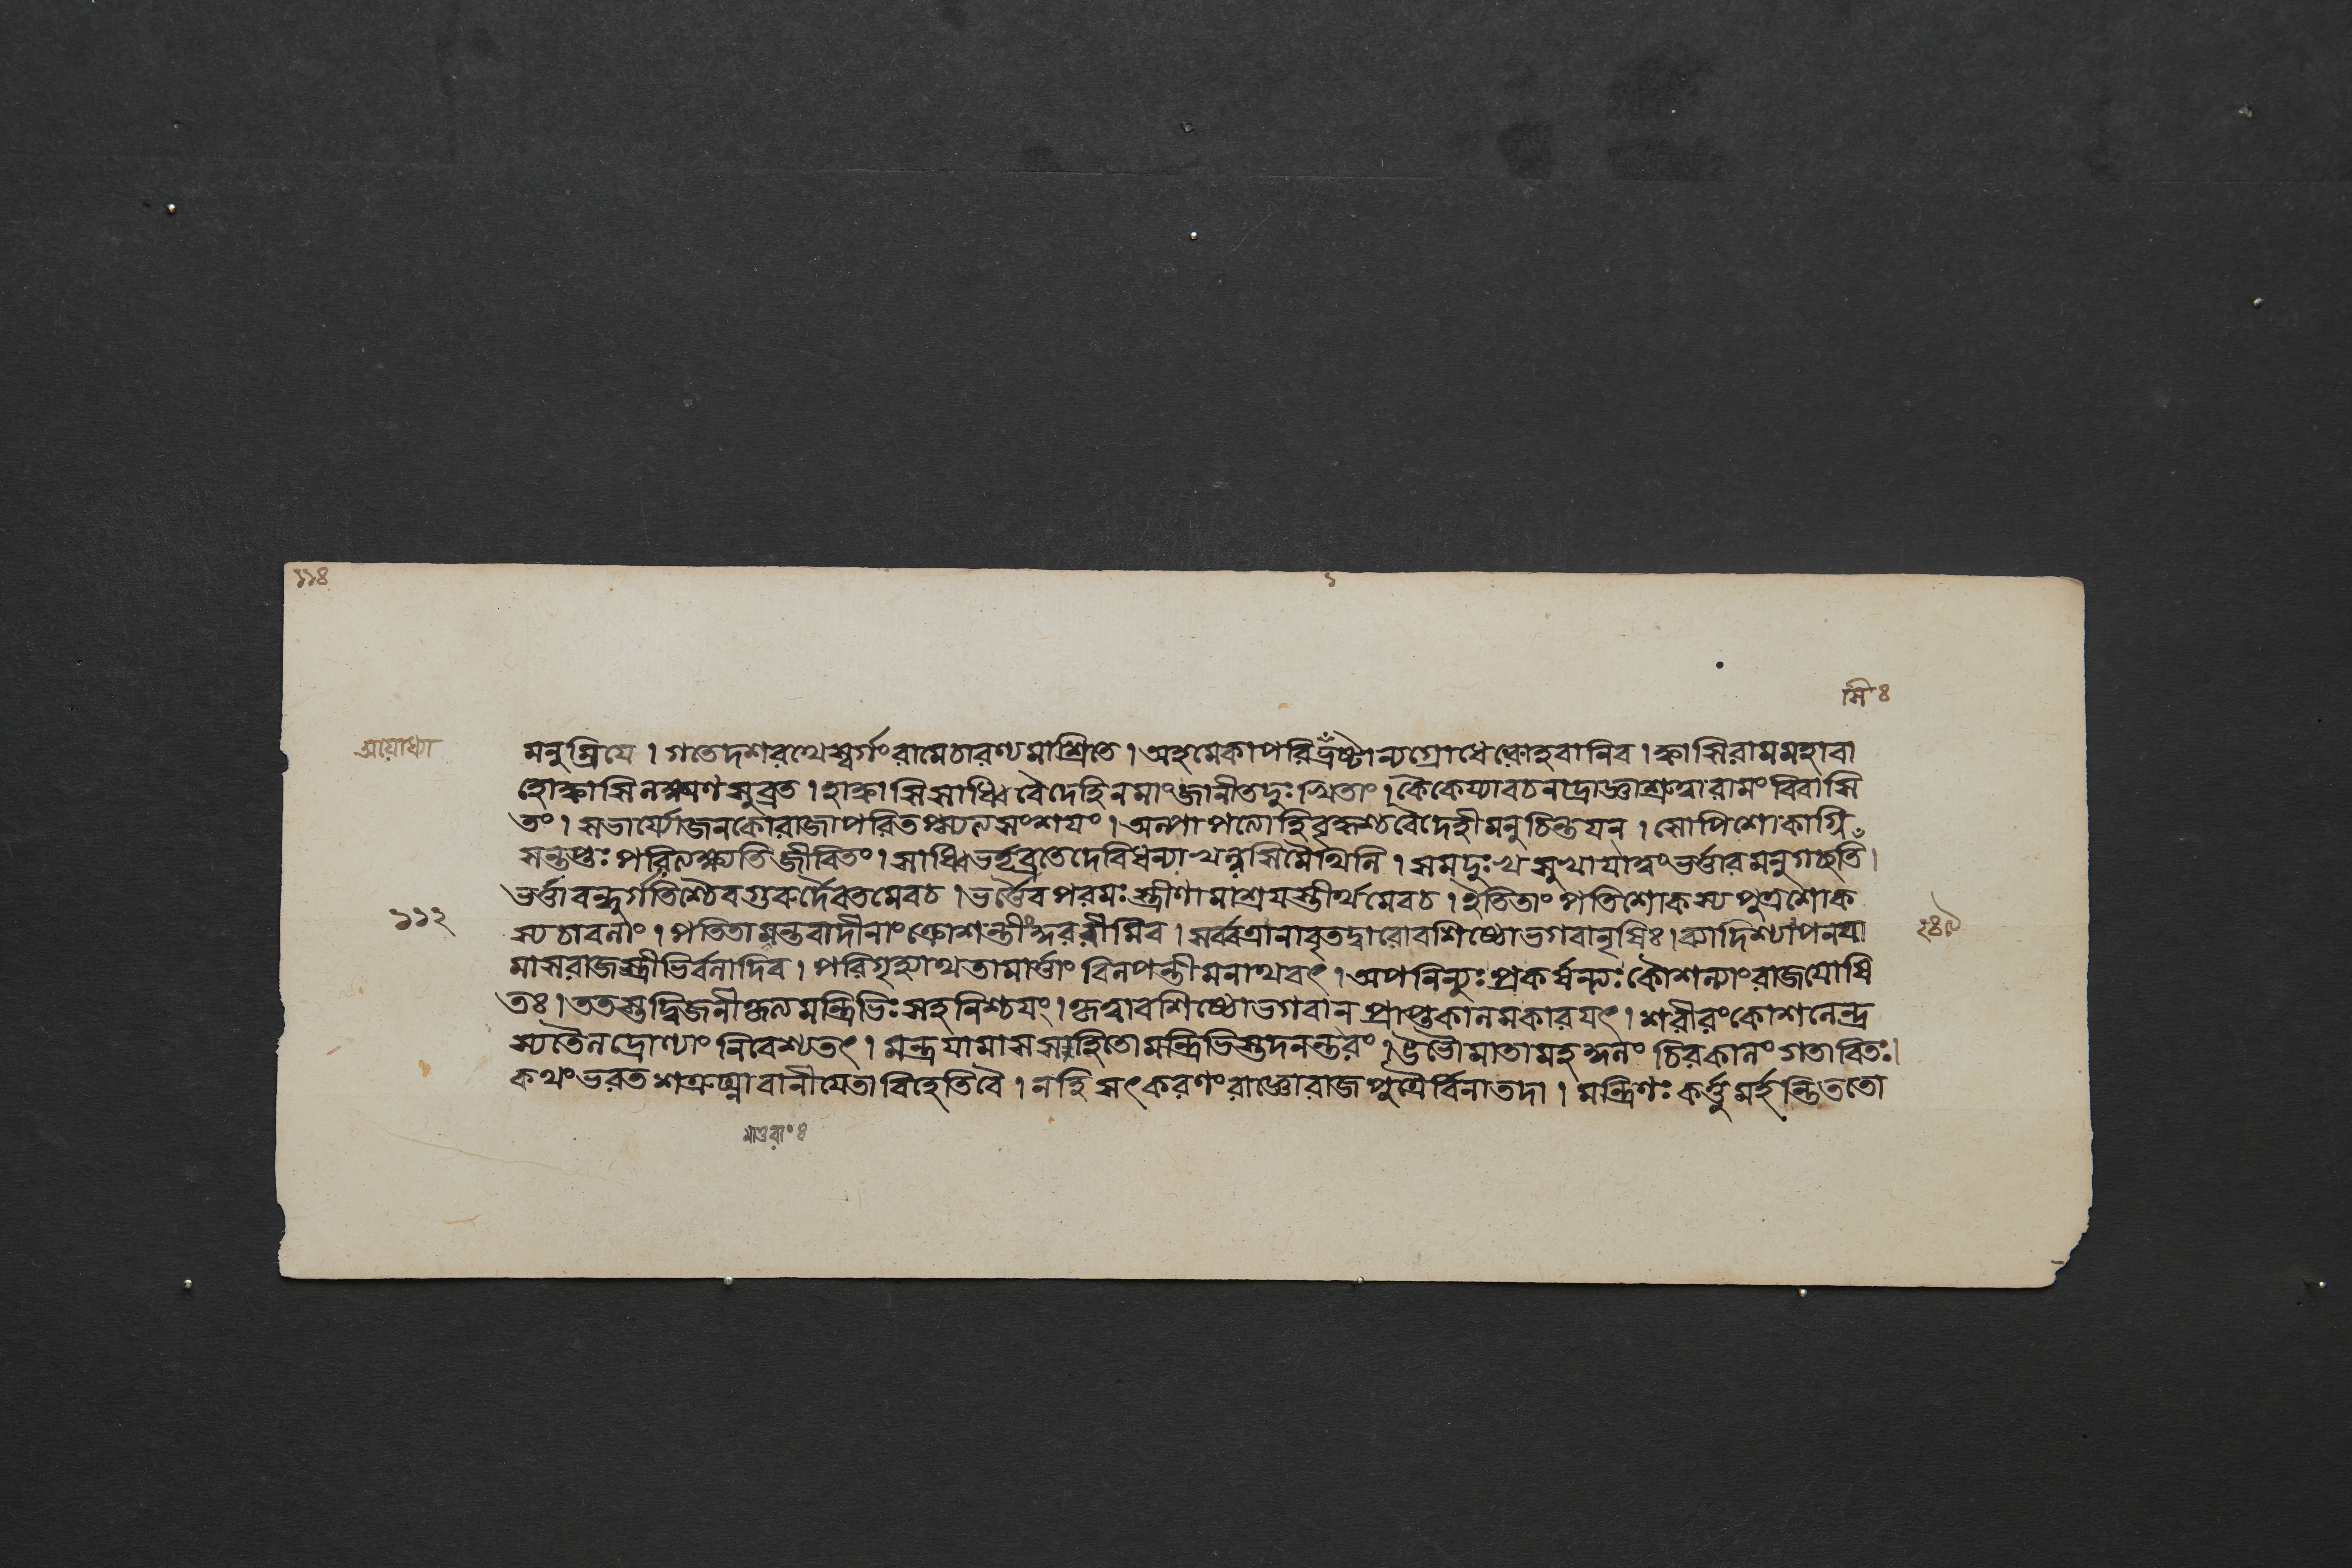 ১১৪
১
মি ৪
অযোধ্যা
মনুম্রিযে । গতেদশরথেস্বর্গংরামেচারণ্যমাশ্রিতে । অহমেকাপরিদ্রষ্টান্যগ্রোধে । ক্বাসিরামমহাবা
হোক্বাসিলক্ষ্মণসুব্রত । হাক্বাসিসাধ্বিবৈদেহিনমাংজানীতদুঃখিতাং । কৈকেয্যাবচনাদ্রাজ্ঞাশ্রুত্বারামংবিবাসি
তং । সভার্য্যোজনকোরাজাপরিতপ্স্যত্যসংশযং । অল্পাপত্যোহিবৃদ্ধশ্চবৈদেহীমনুচিন্তযন্ । সোপিশোকাগ্নি
সন্তপ্তঃপরিত্যক্ষ্যতিজীবিতং । সাধ্বিভর্তৃব্রতেদেবিধন্যাখল্বসিমৈথিলি । সমদুঃখসুখাযাত্বংভর্ত্তারমনুগচ্ছতি ।
ভর্ত্তাবন্ধুর্গতিশ্চৈবগুরুর্দৈবতমেবচ । ভর্ত্তৈবপরমঃস্ত্রীণামাশ্রযস্তীর্থমেবচ । ইতিতাংপতিশোকস্যপুত্রশোক
১১২
স্যচাবলাং । পতিতামন্তবাদীনাংক্রোশন্তীংকুররীমিব । সর্ব্বত্রানাবৃতদ্বারোবশিষ্ঠোভগবানৃষিঃ । ব্যাদিশ্যাপনযা
২৪৯
মাসরাজস্ত্রীভির্বলাদিব । পরিগৃহ্যাথতামার্ত্তাং বিলপন্তীমনাথবৎ । অপনিন্যুঃপ্রকর্ষন্ত্যঃকৌশল্যাংরাজযোষি
তঃ । ততস্তদ্বিজনীকৃত্যমন্ত্রিভিঃসহনিশ্চযং । কৃত্বাবশিষ্ঠোভগবান প্রাপ্তকালমকারযৎ । শরীরংকোশলেন্দ্র
স্যতৈলদ্রোণ্যাং নিবেশ্যতৎ । মন্ত্রযামাসসহিতোমন্ত্রিভিস্তদনন্তরং । উভৌমাতামহকুলং চিরকালং গতাবিতঃ ।
কথংভরতশত্রুঘ্নাবানীযেতাবিহেতিবৈ । নহি সৎকরণংরাজ্ঞোরাজপুত্রৈর্বিনাতদা । মন্ত্রিণঃকর্ত্তুমর্হন্তিততো